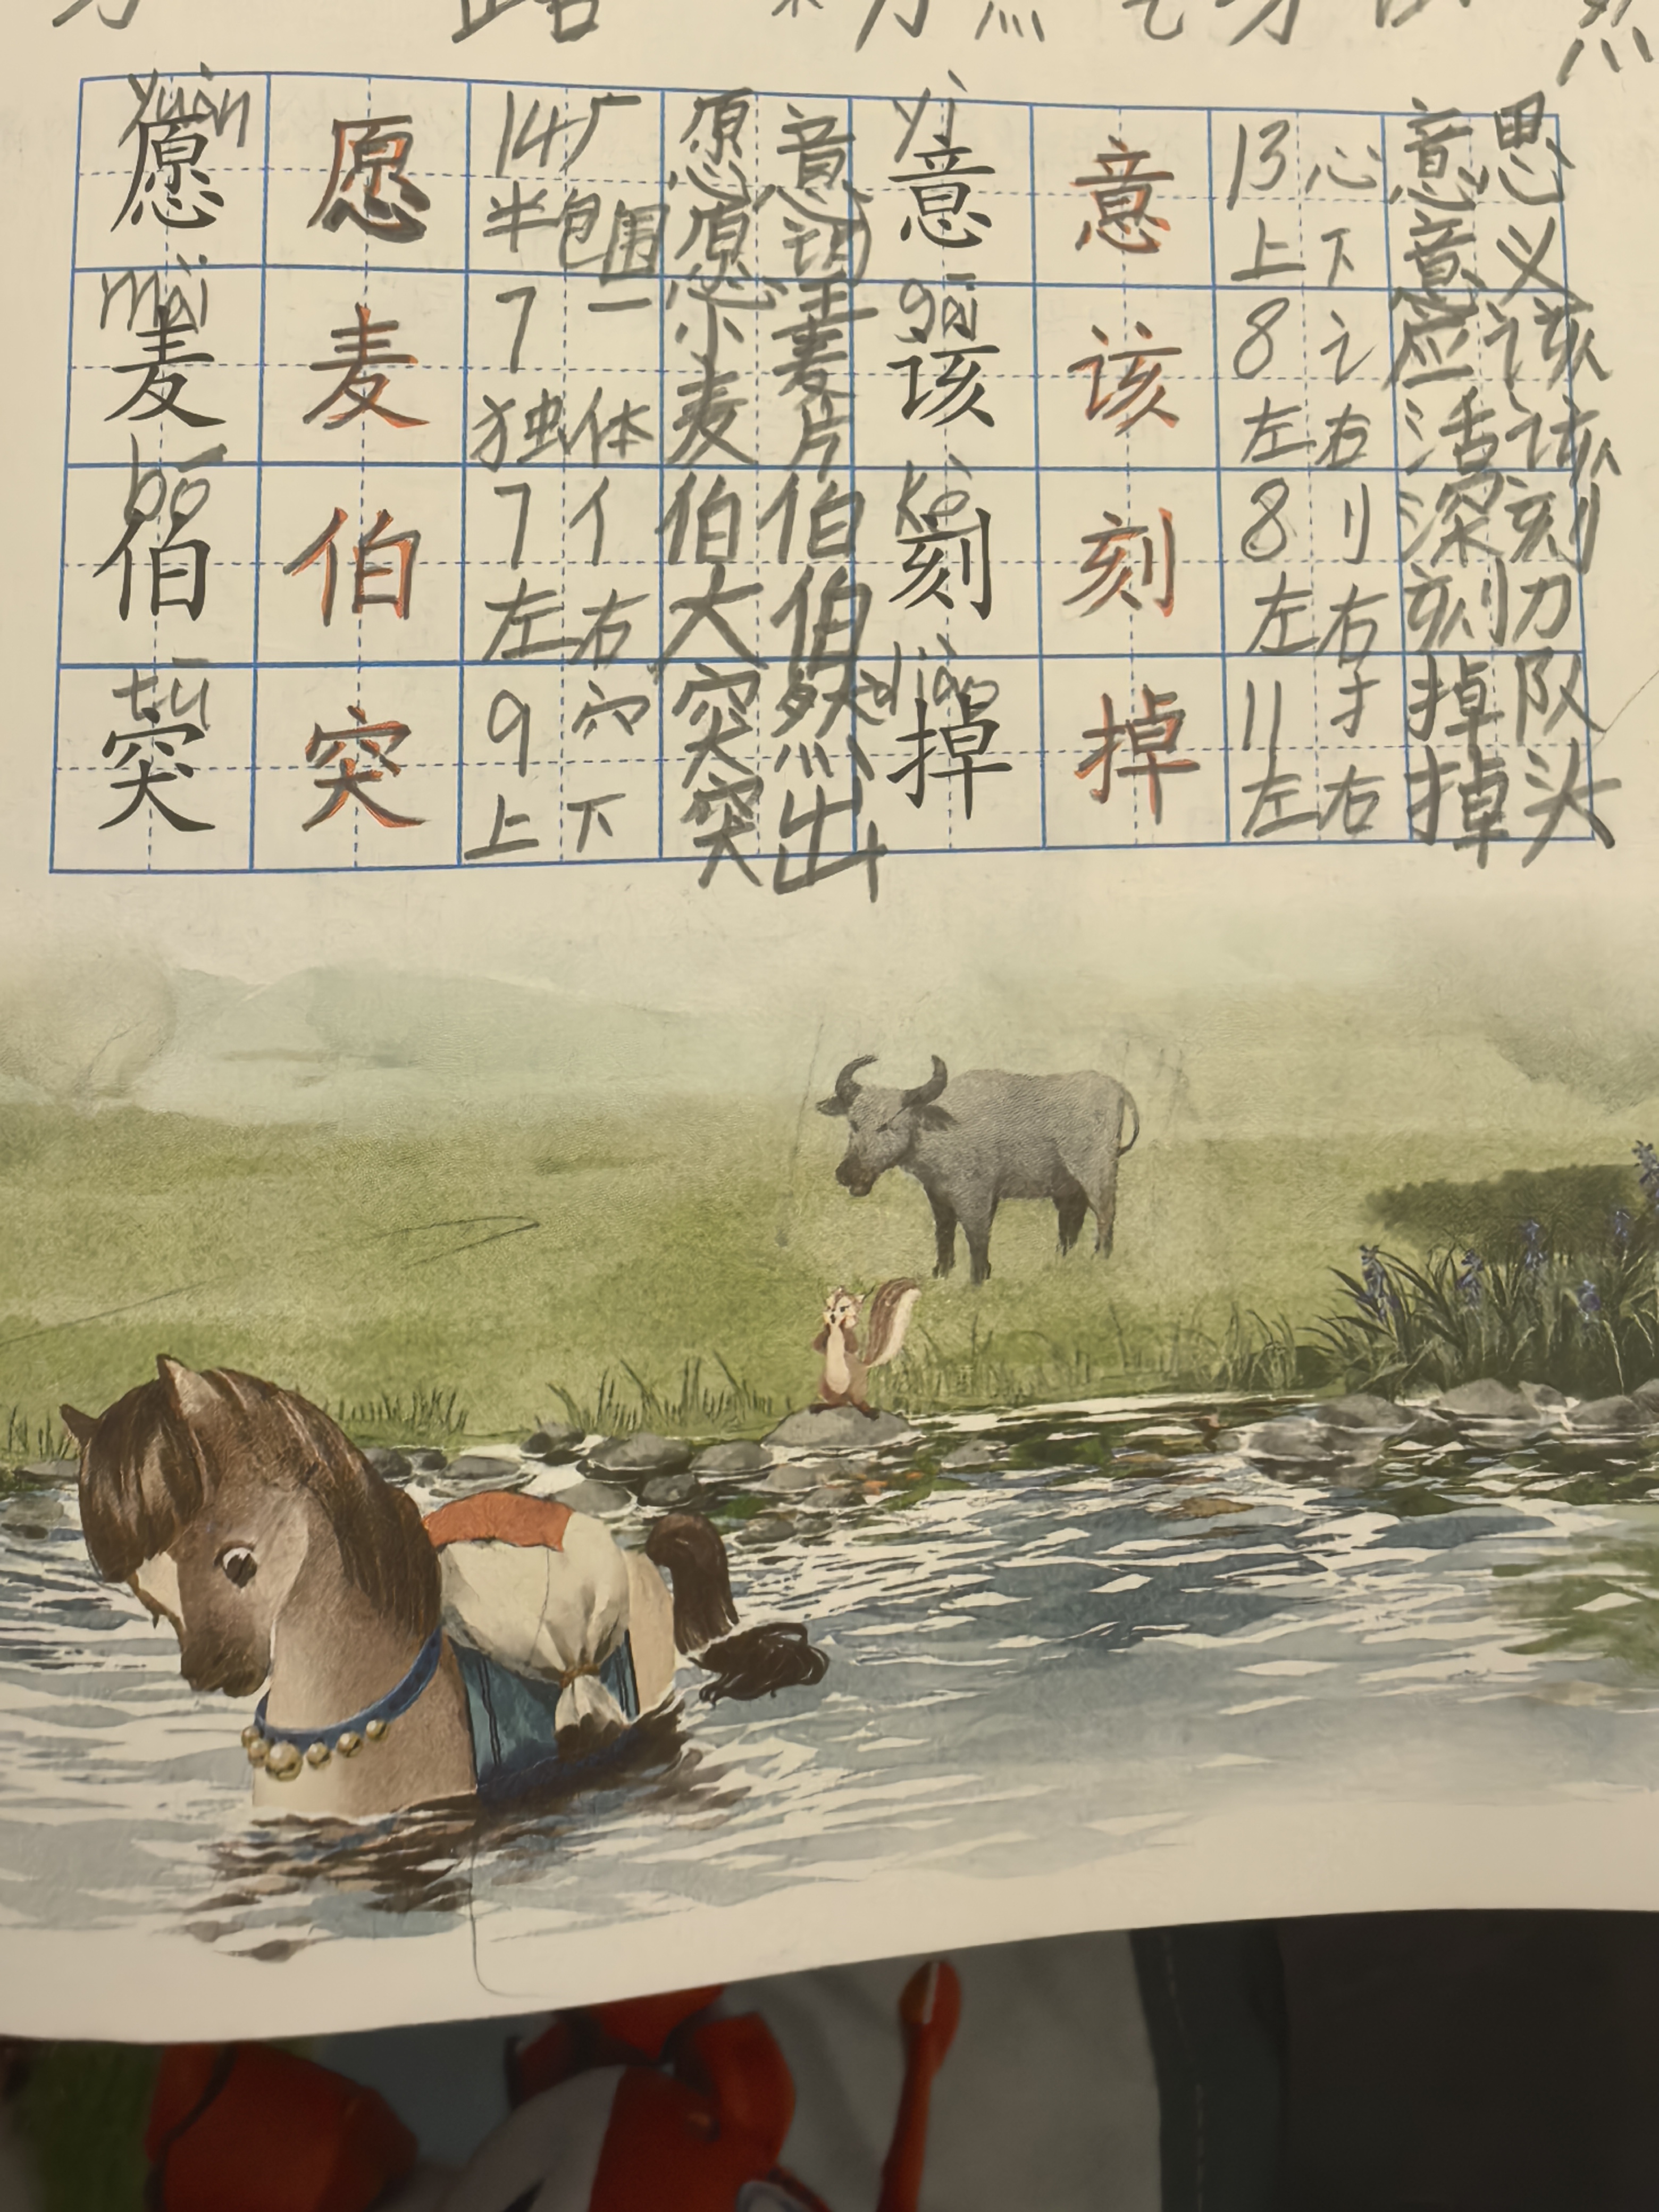 yuàn 愿 愿 14 厂 半包围 愿意 愿望 yì 意 意 13 心 上下 意思 意义
mài 麦 麦 7 一 独体 小麦 麦片 gāi 该 该 8 讠 左右 应该 活该
bó 伯 伯 7 亻 左右 伯伯 大伯 kè 刻 刻 8 刂 左右 深刻 刻刀
tū 突 突 9 穴 上下 突然 突出 diào 掉 掉 11 扌 左右 掉队 掉头